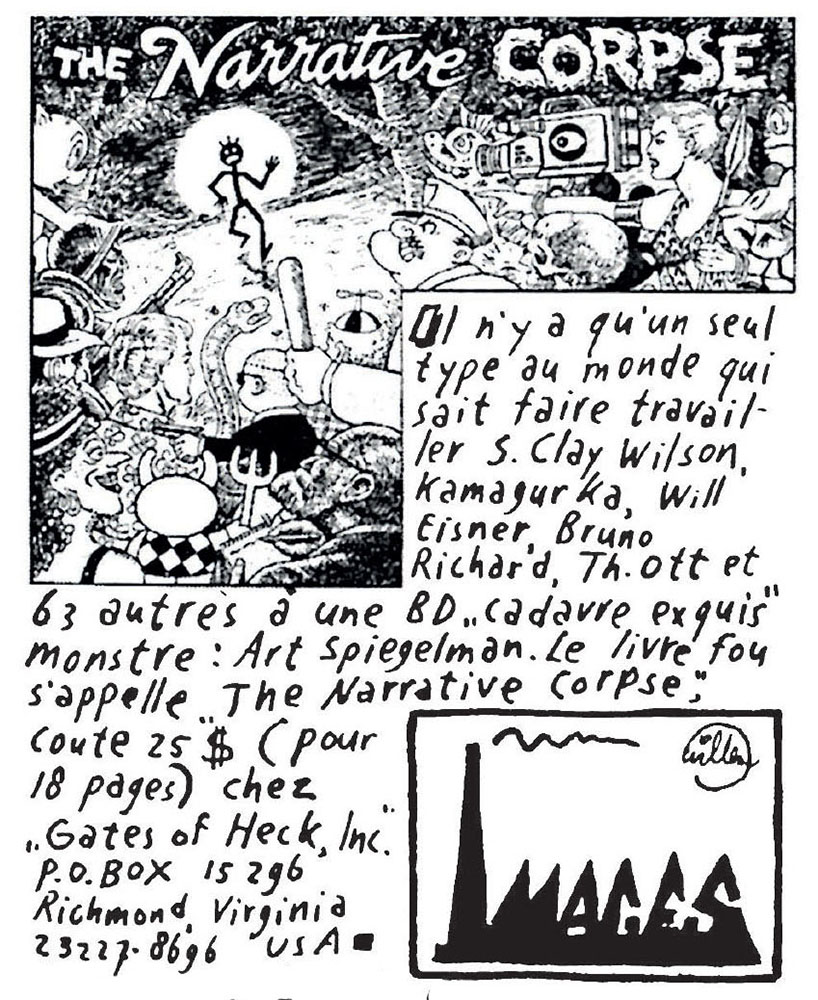 THE Narrative CORPSE
Il n'y a qu'un seul
type au monde qui
sait faire travail-
ler S. Clay Wilson,
Kamagurka, Will
Eisner, Bruno
Richard, Th. Ott et
63 autres à une BD „cadavre exquis"
monstre : Art Spiegelman. Le livre fou
s'appelle „The Narrative Corpse",
coute 25 $ (pour
18 pages) chez
„Gates of Heck, Inc."
P.O. BOX 15296
Richmond, Virginia
23227-8696 USA ■
Willem
IMAGES